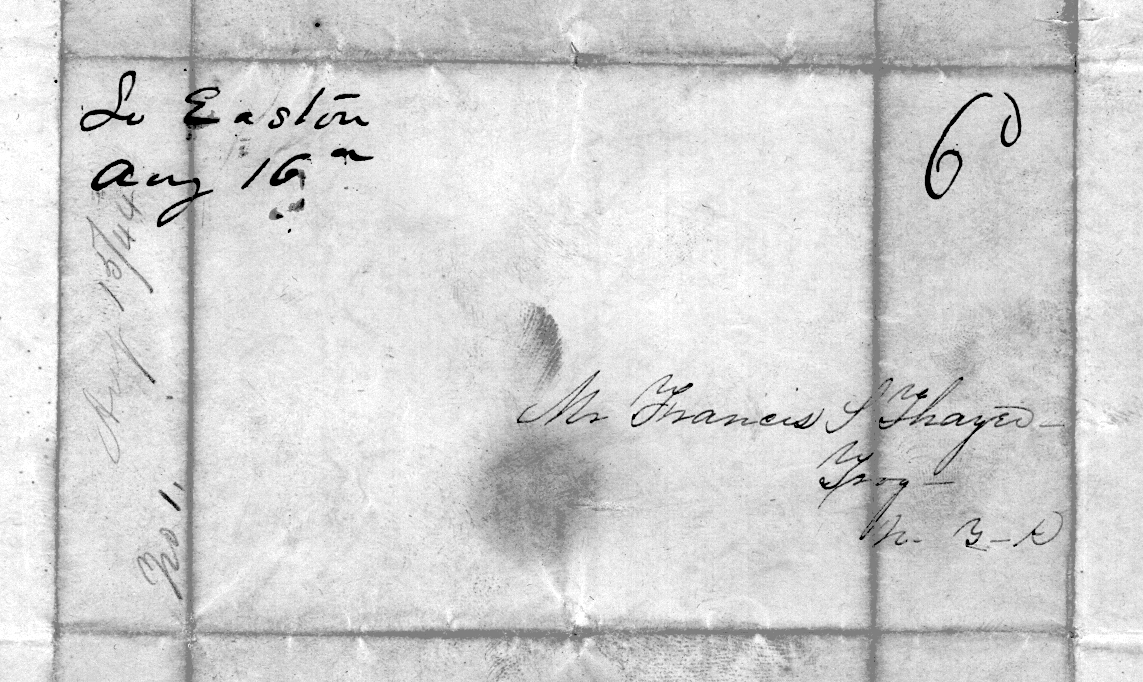 So Easton
Aug 16th
6d
Aug 15/44
No 1.
Mr Francis S Thayer
Troy
N. Y